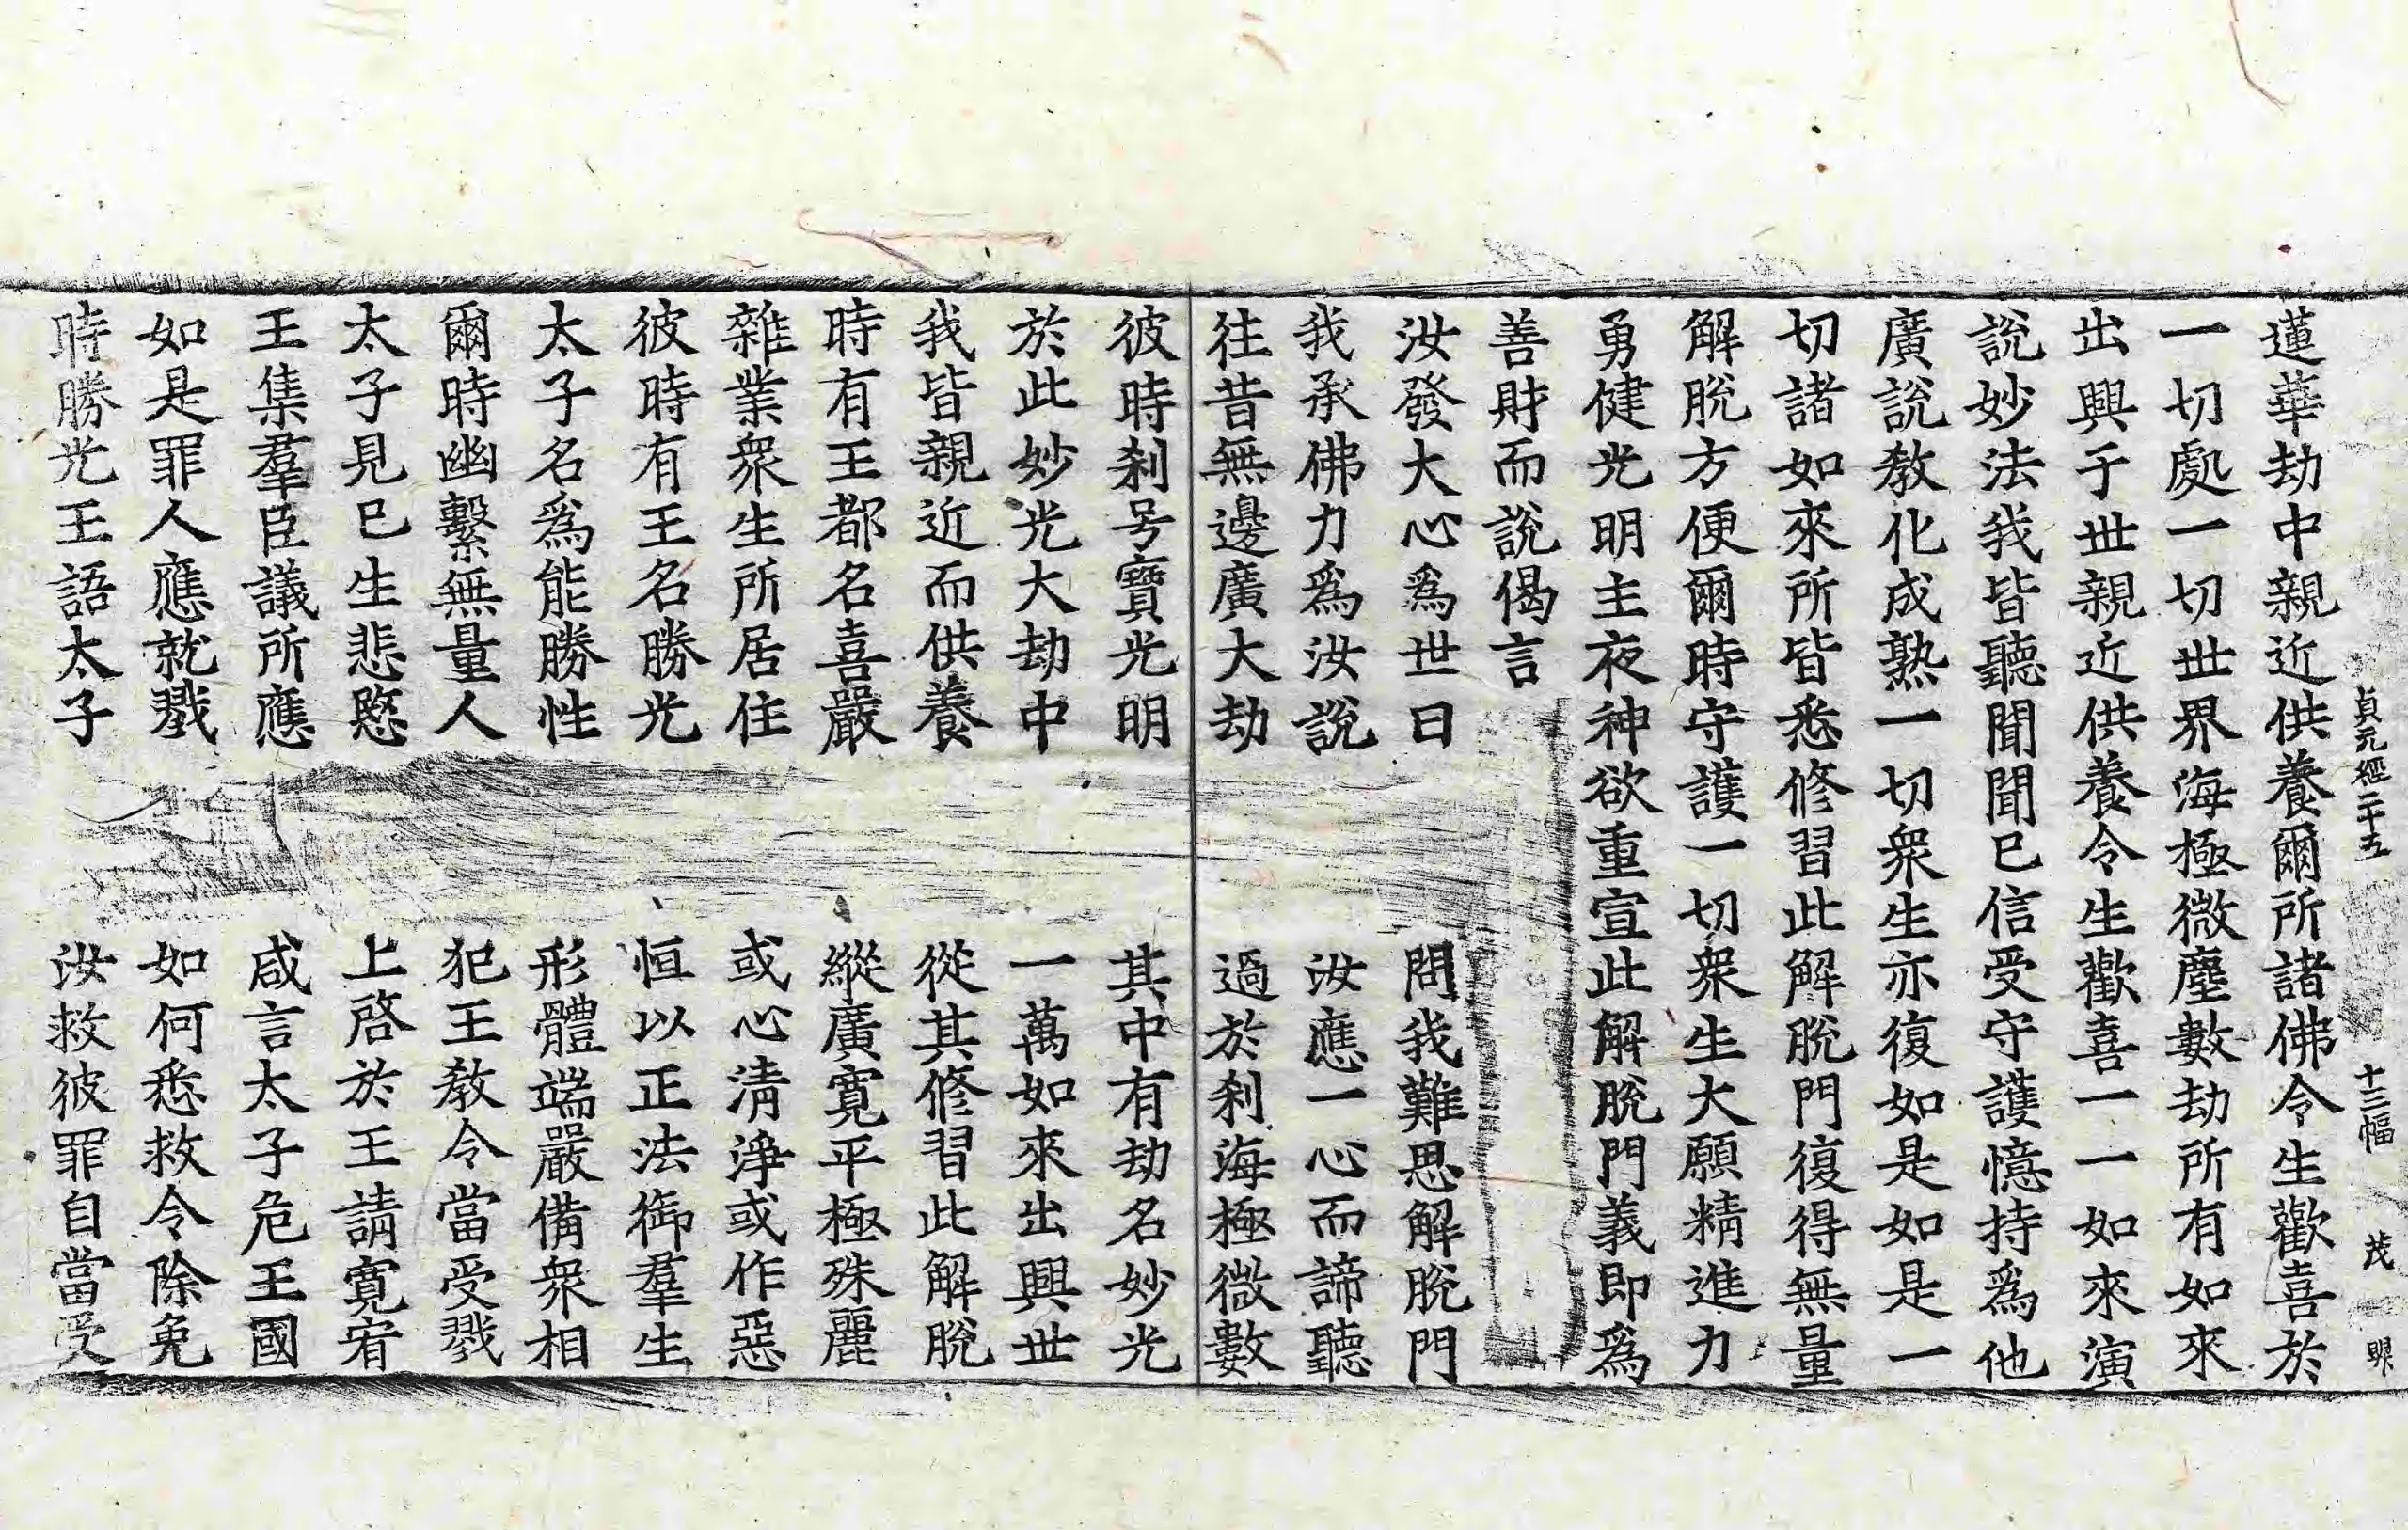 貞元經二十五　十三幅　茂　明
蓮華劫中親近供養爾所諸佛令生歡喜於
一切處一切世界海極微塵數劫所有如來
出興于世親近供養令生歡喜一一如來演
說妙法我皆聽聞聞已信受守護憶持爲他
廣說教化成熟一切衆生亦復如是如是一
切諸如來所皆悉修習此解脫門復得無量
解脫方便爾時守護一切衆生大願精進力
勇健光明主夜神欲重宣此解脫門義即爲
善財而說偈言
汝發大心爲世日　問我難思解脫門
我承佛力爲汝說　汝應一心而諦聽
往昔無邊廣大劫　過於剎海極微數
彼時剎号寶光明　其中有劫名妙光
於此妙光大劫中　一萬如來出興世
我皆親近而供養　從其修習此解脫
時有王都名喜嚴　縱廣寬平極殊麗
雜業衆生所居住　或心清淨或作惡
彼時有王名勝光　恒以正法御羣生
太子名爲能勝性　形體端嚴備衆相
爾時幽繫無量人　犯王教令當受戮
太子見已生悲愍　上啓於王請寬宥
王集羣臣議所應　咸言太子危王國
如是罪人應就戮　如何悉救令除免
時勝光王語太子　汝救彼罪自當受